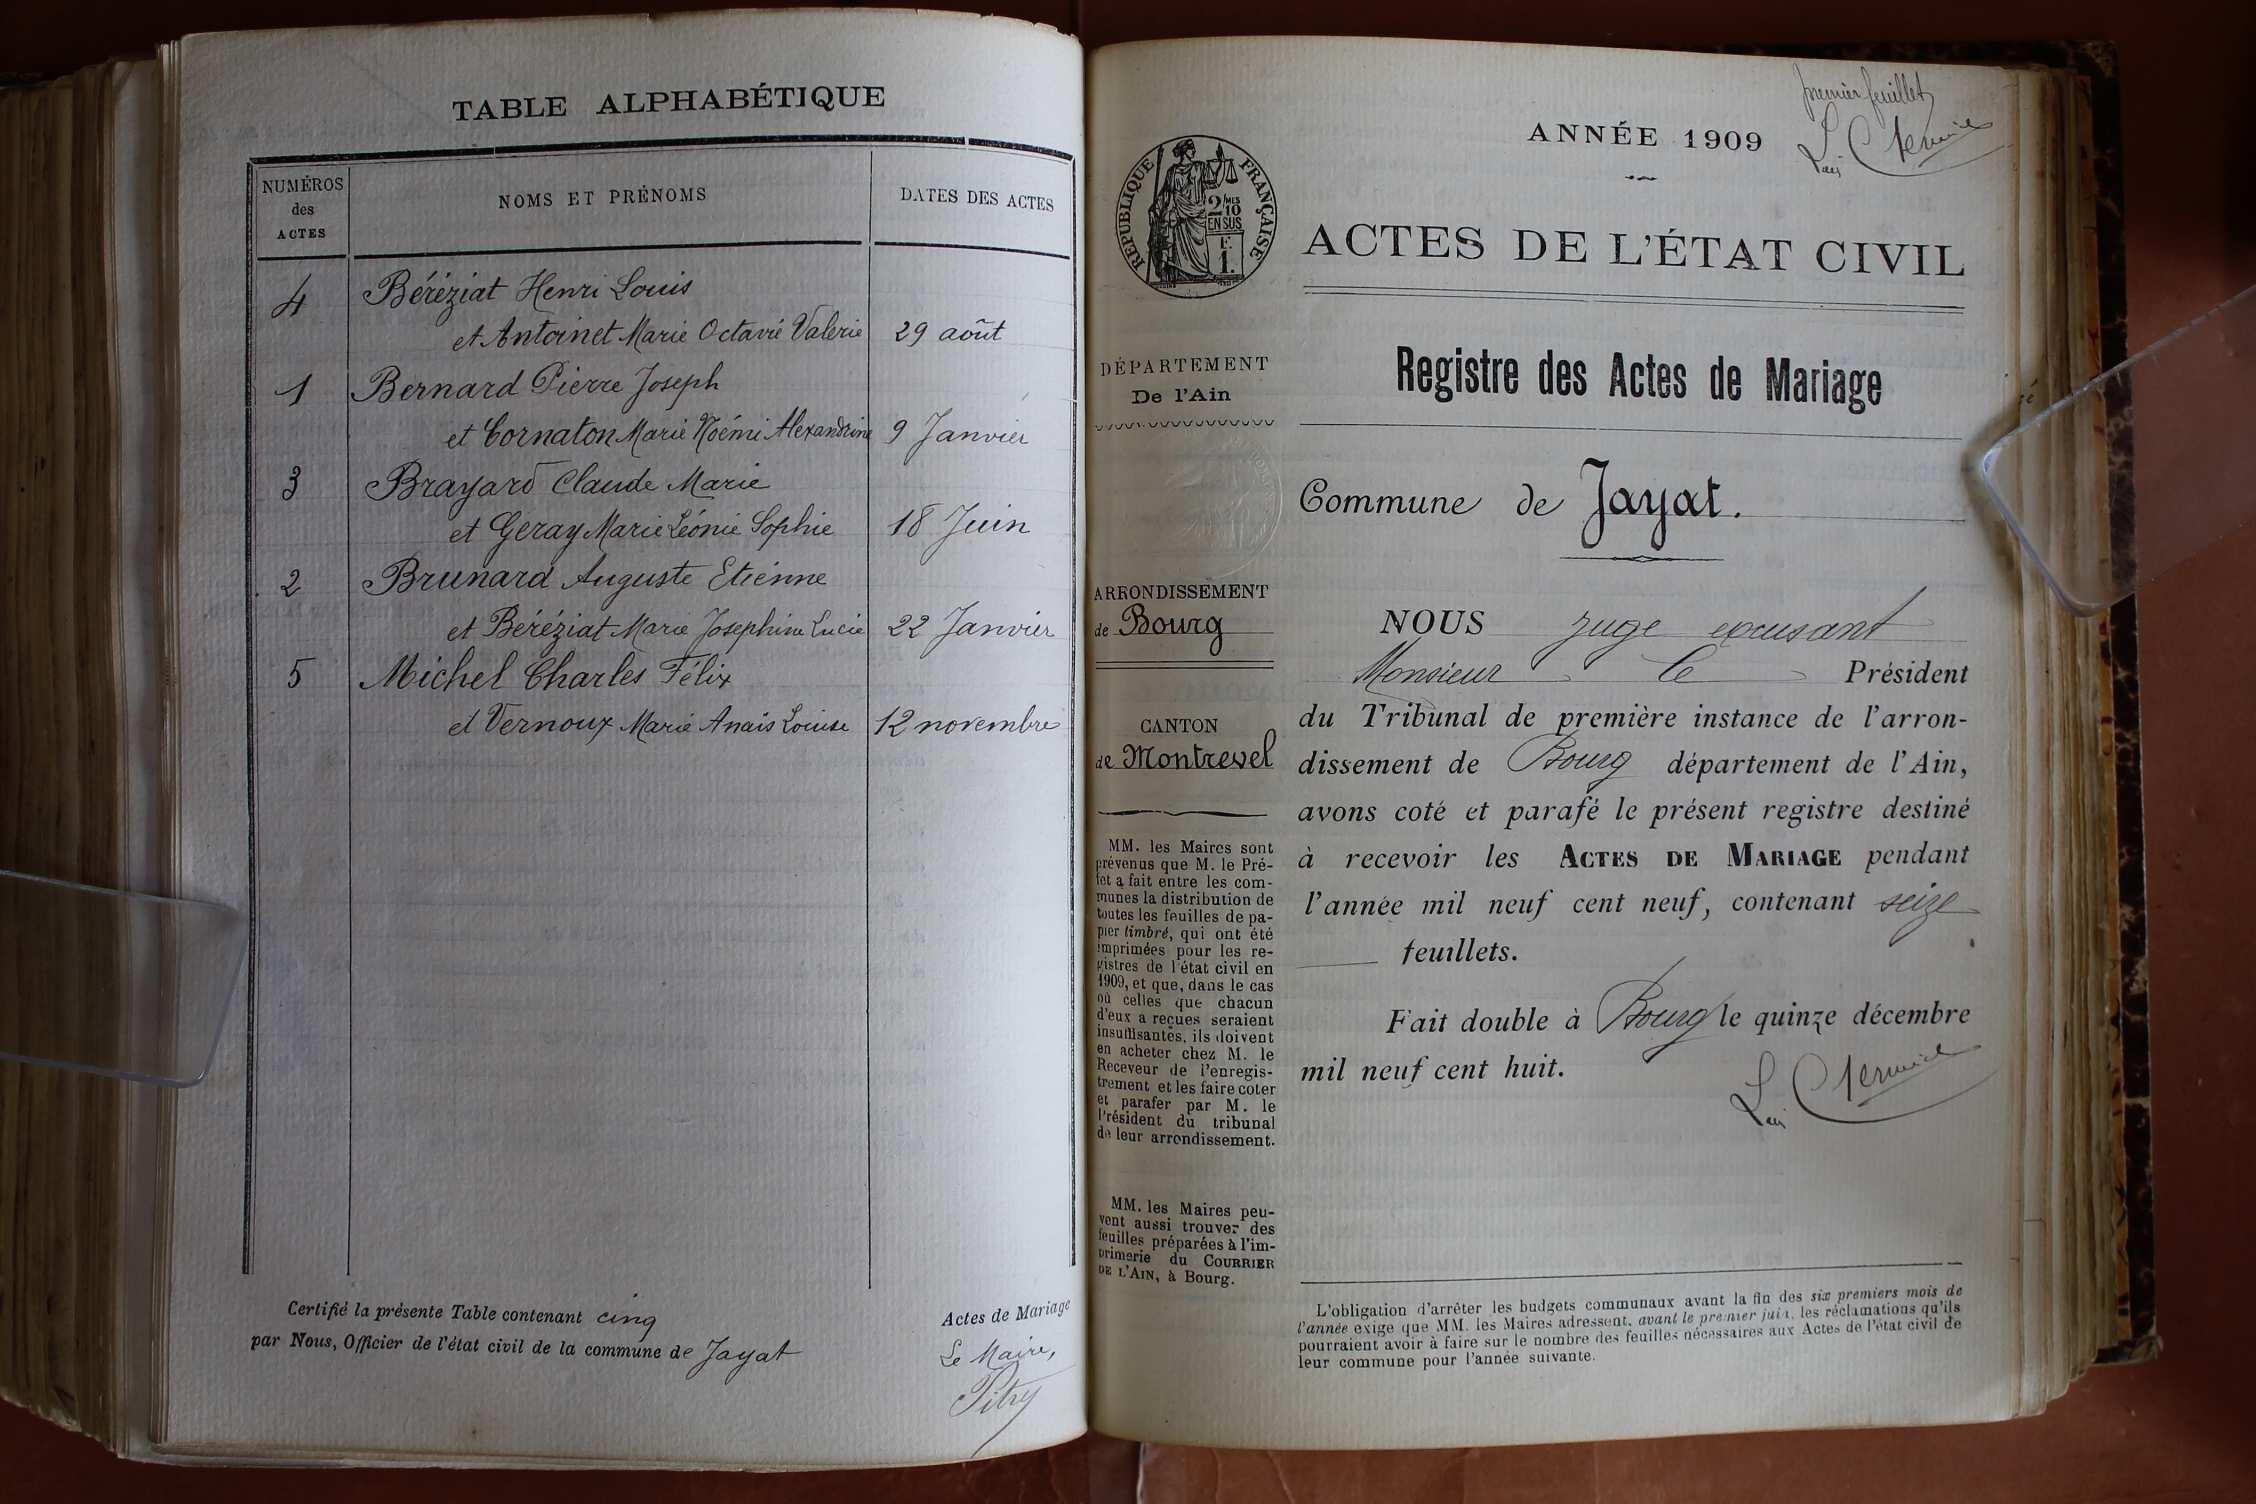 TABLE ALPHABÉTIQUE
NUMÉROS
des
ACTES
NOMS ET PRÉNOMS
DATES DES ACTES
4 Béréziat Henri Louis
et Antoinet Marie Octavie Valerie 29 août
1 Bernard Pierre Joseph
et Cornaton Marie Noémi Alexandrine 9 Janvier
3 Brayard Claude Marie
et Géray Marie Léonie Sophie 18 Juin
2 Brunard Auguste Etienne
et Béréziat Marie Josephine Lucie 22 Janvier
5 Michel Charles Félix
et Vernoux Marie Anaïs Louise 12 novembre
Certifié la présente Table contenant cinq
par Nous, Officier de l'état civil de la commune de Jayat
Actes de Mariage
Le Maire,
Pitry
premier feuillet
ANNÉE 1909
RÉPUBLIQUE FRANÇAISE
2/MES
10
EN SUS
F.
1.
ACTES DE L'ÉTAT CIVIL
DÉPARTEMENT
De l'Ain
ARRONDISSEMENT
de Bourg
CANTON
de Montrevel
MM. les Maires sont
prévenus que M. le Pré-
fet a fait entre les com-
munes la distribution de
toutes les feuilles de pa-
pier timbré, qui ont été
imprimées pour les re-
gistres de l'état civil en
1909, et que, dans le cas
où celles que chacun
d'eux a reçues seraient
insuffisantes, ils doivent
en acheter chez M. le
Receveur de l'enregis-
trement et les faire coter
et parafer par M. le
Président du tribunal
de leur arrondissement.
MM. les Maires peu-
vent aussi trouver des
feuilles préparées à l'im-
primerie du COURRIER
DE L'AIN, à Bourg.
Registre des Actes de Mariage
Commune de Jayat.
NOUS juge excusant
Monsieur le Président
du Tribunal de première instance de l'arron-
dissement de Bourg département de l'Ain,
avons coté et parafé le présent registre destiné
à recevoir les ACTES DE MARIAGE pendant
l'année mil neuf cent neuf, contenant seize
feuillets.
Fait double à Bourg le quinze décembre
mil neuf cent huit.
L'obligation d'arrêter les budgets communaux avant la fin des six premiers mois de
l'année exige que MM. les Maires adressent, avant le premier juin, les réclamations qu'ils
pourraient avoir à faire sur le nombre des feuilles nécessaires aux Actes de l'état civil de
leur commune pour l'année suivante.